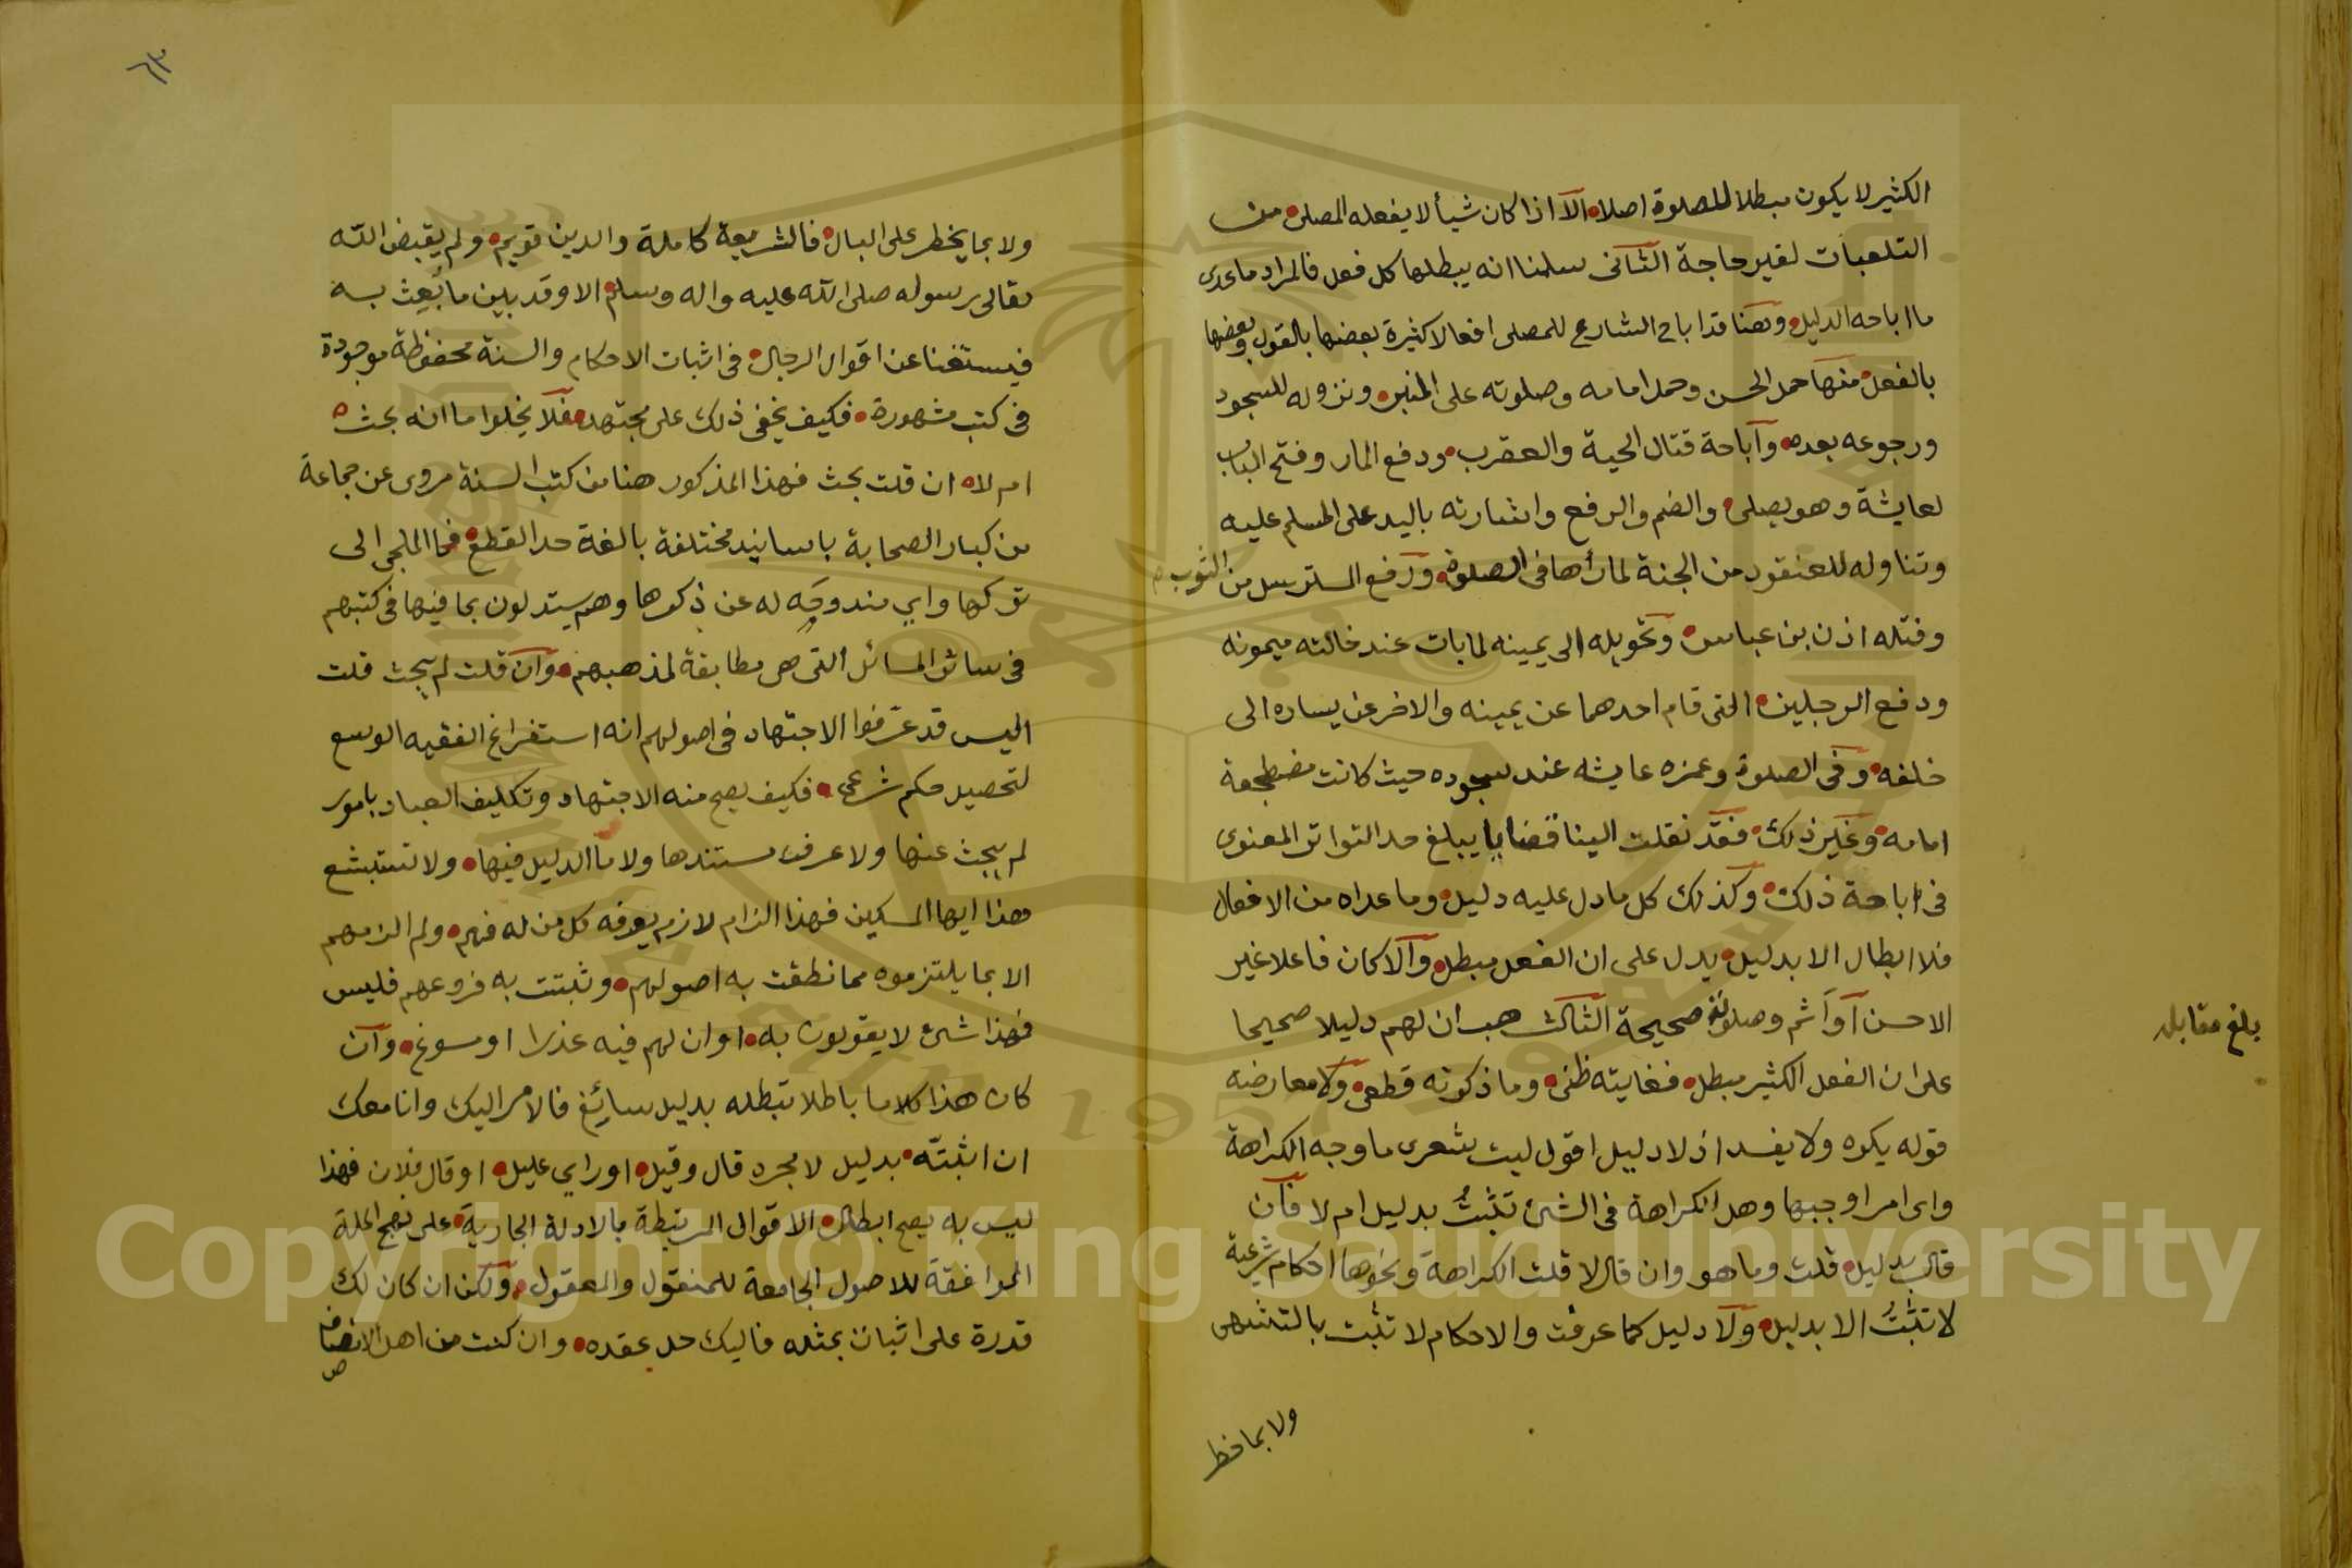 الكثير لا يكون مبطلا للصلوة اصلا الا اذا كان شيأ لا يفعله المصلى من
التلعبات لغير حاجة الثانى سلمنا انه يبطلها كل فعل فالمراد ما عدى
ما اباحه الدليل وهنا قد اباح الشارع للمصلى افعالا كثيرة بعضها بالقول وبعضها
بالفعل منها حمل الحسن وحمل امامه وصلوته على المنبر ونزوله للسجود
ورجوعه بعده واباحة قتال الحية والعقرب ودفع المار وفتح الباب
لعايشة وهو يصلى والضم والرفع واشارته باليد على المسلم عليه
وتناوله للعنقود من الجنة لما رأها فى الصلوة ورفع المسترسل من الثوب
وفتله اذن بن عباس وتحويله الى يمينه لما بات عند خالته ميمونه
ودفع الرجلين التى قام احدهما عن يمينه والاخر عن يساره الى
خلفه وفى الصلوة وغمزه عايشه عند سجوده حيث كانت مضطجعة
امامه وغير ذلك فقد نقلت الينا قضايا يبلغ حد التواتر المعنوى
فى اباحة ذلك وكذلك كل ما دل عليه دليل وما عداه من الافعال
فلا ابطال الا بدليل يدل على ان الفعل مبطل والا كان فاعلا غير
الاحسن او آثم وصلوته صحيحة الثالث هب ان لهم دليلا صحيحا
على ان الفعل الكثير مبطل فغايته ظنى وما ذكرته قطعى ولا معارضه
قوله يكره ولا يفسد اذ لا دليل اقول ليت شعرى ما وجه الكراهة
واى امر اوجبها وهل الكراهة فى الشئ تثبت بدليل ام لا فان
قال بدليل قلت وما هو وان قال لا قلت الكراهة ونحوها احكام شرعية
لا تثبت الا بدليل ولا دليل كما عرفت والاحكام لا تثبت بالتشهى
ولا بما خطر
بلغ مقابله
٦٣
ولا بما يخطر على البال فالشريعة كاملة والدين قويم ولم يقبض الله
تعالى رسوله صلى الله عليه واله وسلم الا وقد بين ما بُعِث به
فيستغنا عن اقوال الرجال فى اثبات الاحكام والسنة محفوظة موجودة
فى كتب مشهورة فكيف يخفى ذلك على مجتهد فلا يخلوا ما انه بحث
ام لا ان قلت بحث فهذا المذكور هنا من كتب السنة مروى عن جماعة
من كبار الصحابة باسانيد مختلفة بالغة حد القطع فما الملجى الى
تركها واي مندوحه له عن ذكرها وهم يستدلون بما فيها فى كتبهم
فى سائر المسائل التى هى مطابقة لمذهبهم وان قلت لم يبحث قلت
اليس قد عرّفوا الاجتهاد فى اصولهم انه استفراغ الفقيه الوسع
لتحصيل حكم شرعى فكيف يصح منه الاجتهاد وتكليف العباد بامور
لم يبحث عنها ولا عرف مستندها ولا ما الدليل فيها ولا تستبشع
هذا ايها المسكين فهذا الزام لازم يعرفه كل من له فهم ولم الزمهم
الا بما يلتزموه مما نطقت به اصولهم وثبتت به فروعهم فليس
فهذا شئ لا يقولون به او ان لهم فيه عذرا او مسوغ وان
كان هذا كلاما باطلا تبطله بدليل سائغ فالامر اليك وانا معك
ان اثبتّه بدليل لا مجرد قال وقيل او راي عليل او قال فلان فهذا
ليس به يصح ابطال الاقوال المرتبطة بالادلة الجارية على نهج الملة
الموافقة للاصول الجامعة للمنقول والمعقول ولكن ان كان لك
قدرة على اثبات بمثله فاليك حل عقده وان كنت من اهل الانصاف